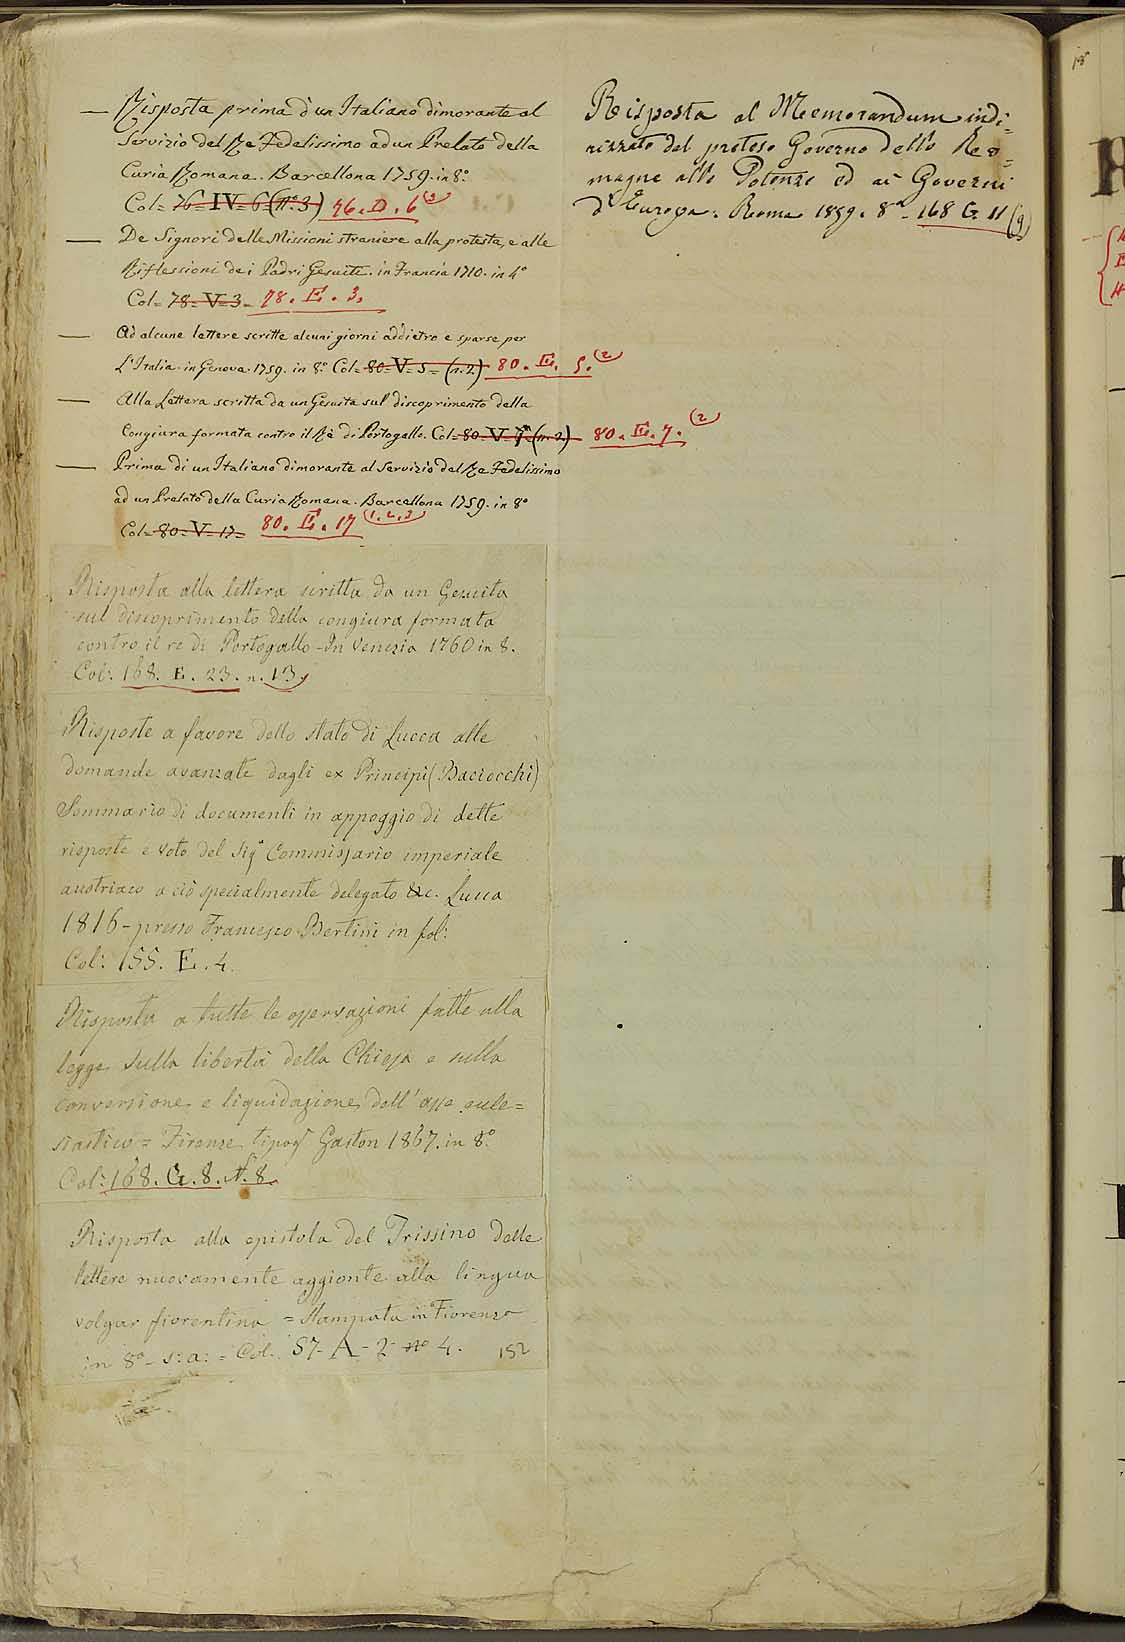 — Risposta prima d'un Italiano dimorante al
Servizio del Re Fedelissimo ad un Prelato della
Curia Romana. Barcellona 1759. in 8.º
Col= 76= IV= 6= (nº. 3) 76. D. 6 (3)
— De Signori delle Missioni straniere alla protesta, e alle
Riflessioni dei Padri Gesuiti. in Francia 1710. in 4º
Col= 78= V= 3= 78. E. 3.
— Ad alcune lettere scritte alcuni giorni addietro e sparse per
L'Italia. in Genova. 1759. in 8.º Col= 80= V= 5= (n. 2) 80. E. 5. (2)
— Alla Lettera scritta da un Gesuita sul discoprimento della
Congiura formata contro il Rè di Portogallo. Col= 80= V= 7 (n. 2) 80. E. 7. (2)
— Prima di un Italiano dimorante al Servizio del Re Fedelissimo
ad un Prelato della Curia Romana. Barcellona 1759. in 8º
Col= 80= V= 17= 80. E. 17 (1. 2. 3)
Risposta alla lettera scritta da un Gesuita
sul discoprimento della congiura formata
contro il re di Portogallo - In Venezia 1760 in 8.
Col: 168. E. 23. n. 13,
Risposte a favore dello stato di Lucca alle
domande avanzate dagli ex Principi (Baciocchi)
Sommario di documenti in appoggio di dette
risposte e voto del Sigr Commissario imperiale
austriaco a ciò specialmente delegato &c. Lucca
1816 - presso Francesco Bertini in fol:
Col: 155. E. 4.
Risposta a tutte le osservazioni fatte alla
legge sulla libertà della Chiesa e sulla
conversione e liquidazione dell'asse eccle=
siastico = Firenze tipogr Gaston 1867. in 8.º
Col: 168. G. 8. N. 8.
Risposta alla epistola del Trissino delle
lettere nuovamente aggionte alla lingua
volgar fiorentina = Stampata in Fiorenza
in 8º - s: a: = Col. 57- A- 2 nº 4. 152
Risposta al Memorandum indi=
rizzato dal preteso Governo delle Ro=
magne alle Potenze ed ai Governi
d'Europa. Roma 1859. 8º - 168 G. 11 (9)